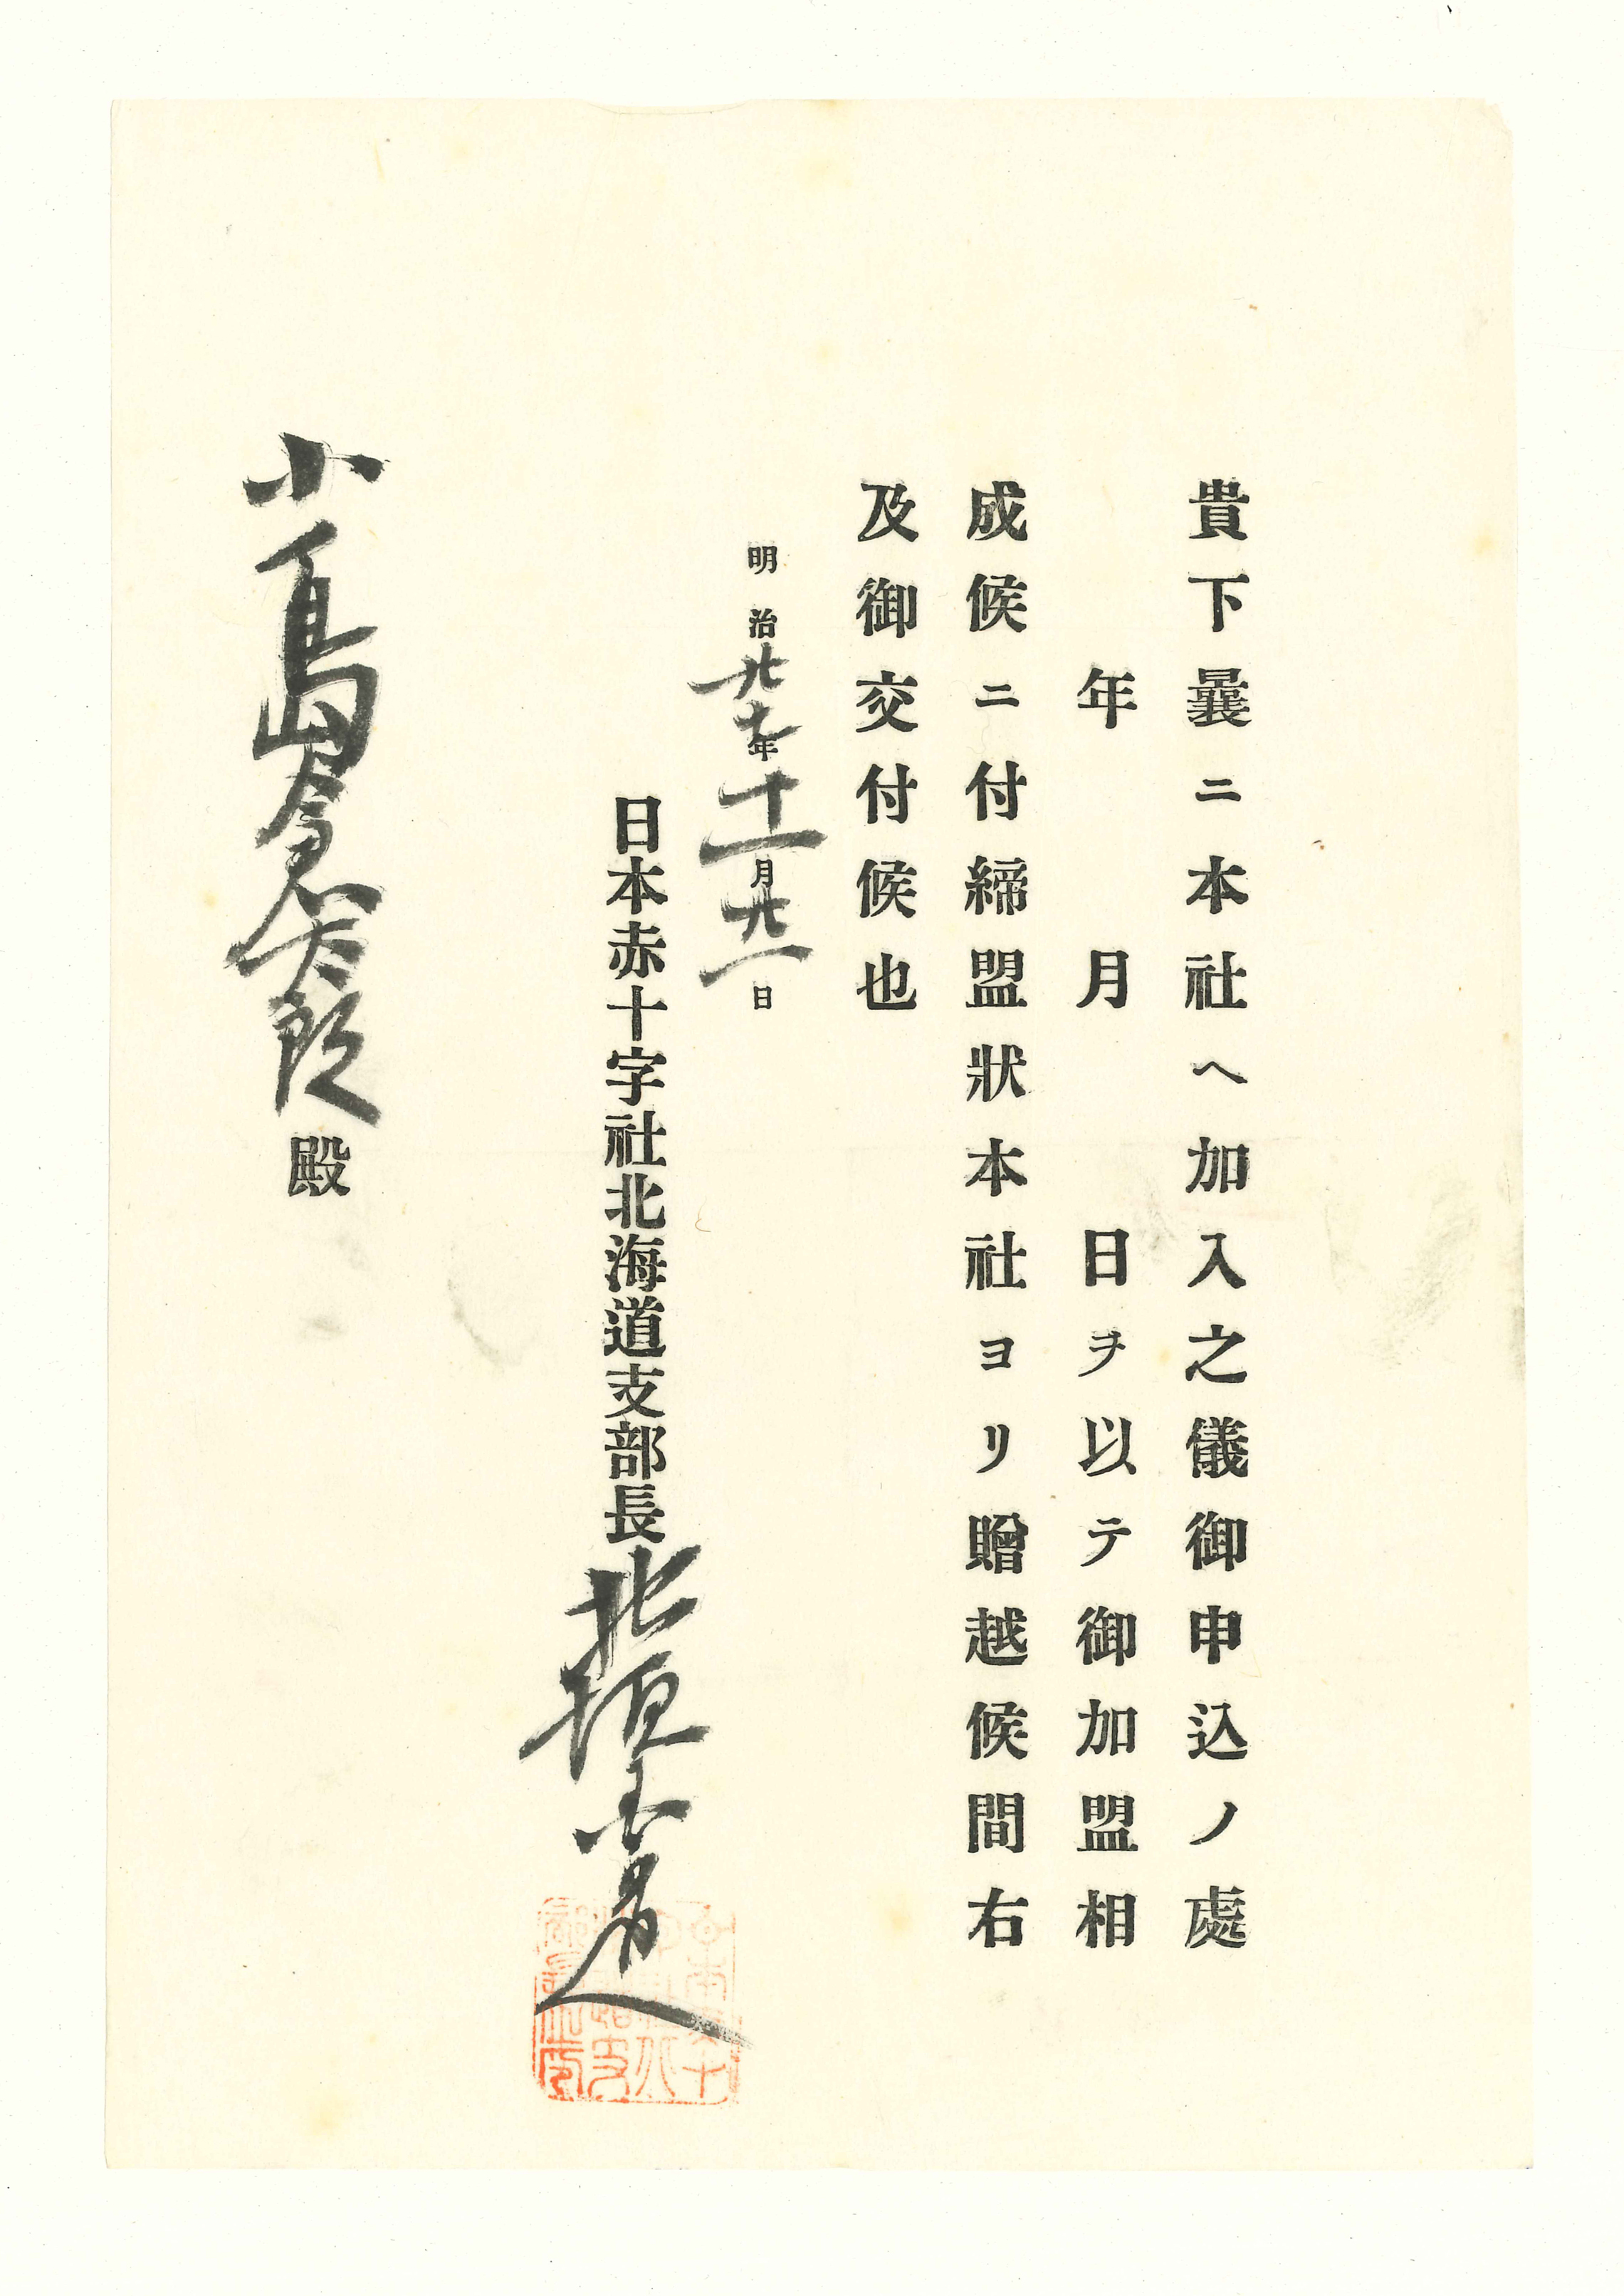 貴下曩ニ本社ヘ加入之儀御申込ノ處
年 月 日ヲ以テ御加盟相
成候ニ付締盟狀本社ヨリ贈越候間右
及御交付候也
明治廿七年十一月廿一日
日本赤十字社北海道支部長北垣国道
小島倉太郎殿